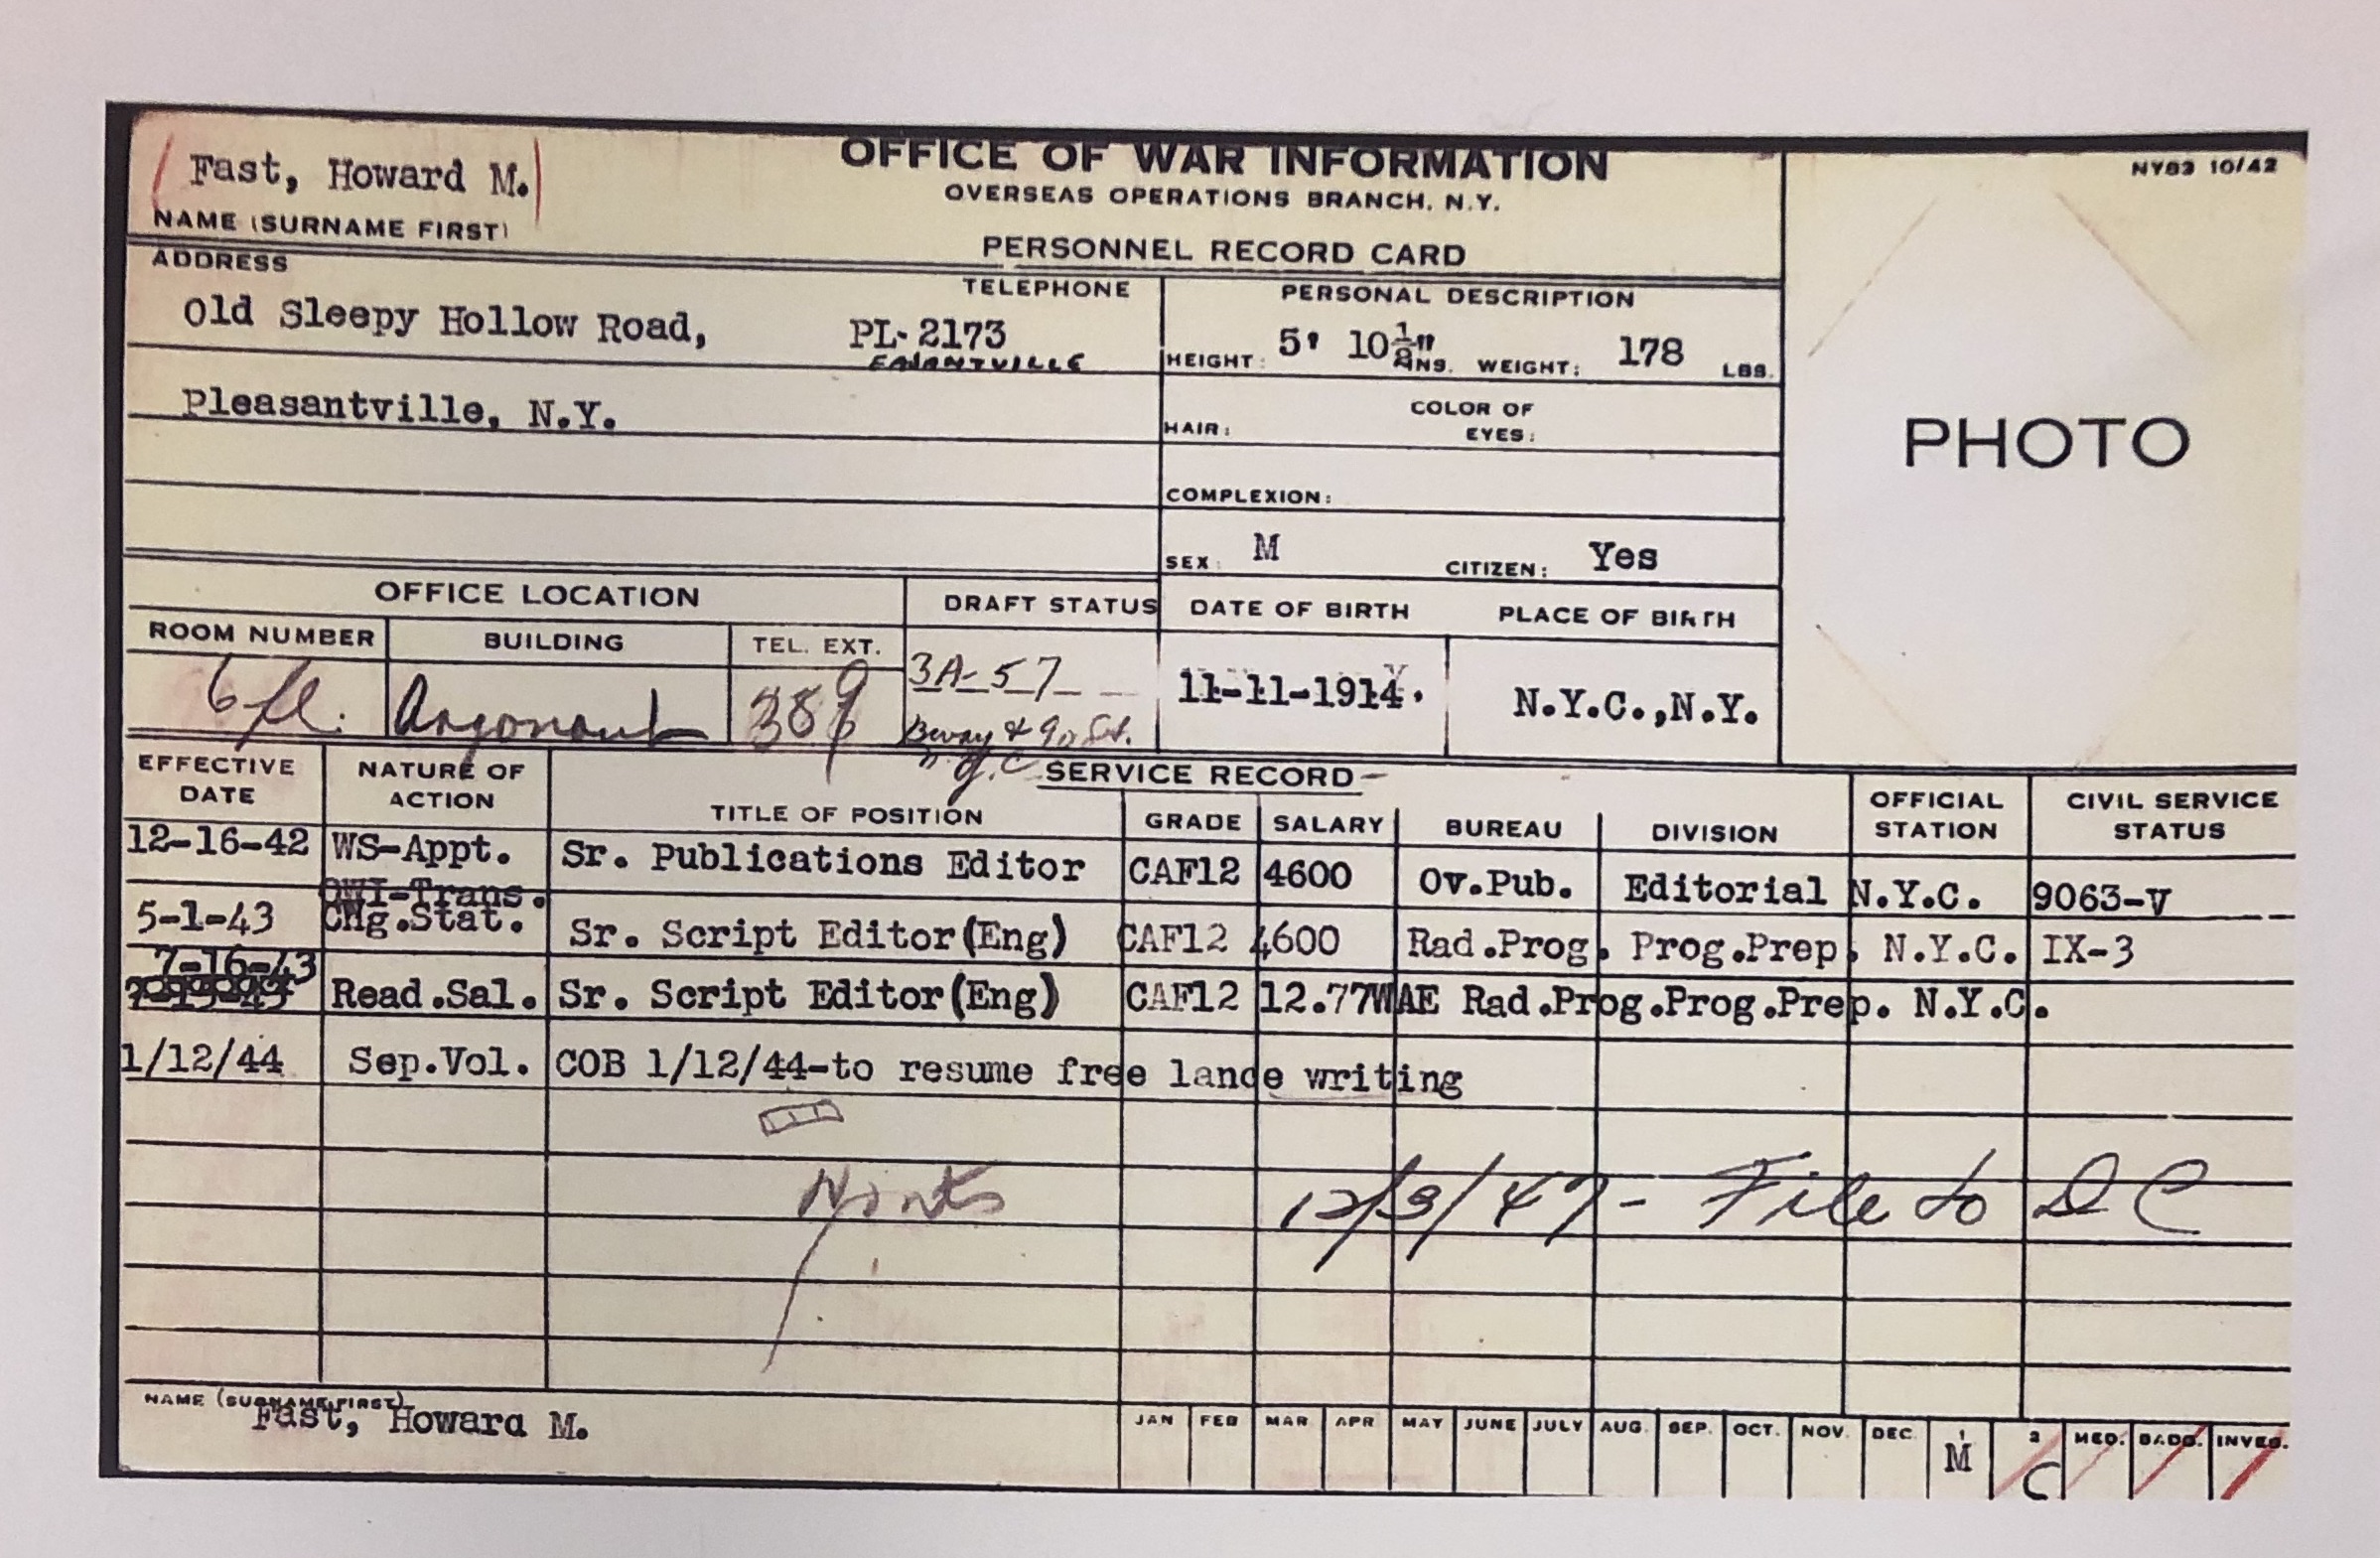 Fast, Howard M.
NAME (SURNAME FIRST)
OFFICE OF WAR INFORMATION
OVERSEAS OPERATIONS BRANCH, N.Y.
PERSONNEL RECORD CARD
NY83 10/42
PHOTO
ADDRESS
TELEPHONE
Old Sleepy Hollow Road, PL-2173
Pleasantville, N.Y.
PERSONAL DESCRIPTION
HEIGHT: 5' 10½" INS. WEIGHT: 178 LBS.
HAIR: COLOR OF EYES:
COMPLEXION:
SEX: M CITIZEN: Yes
OFFICE LOCATION DRAFT STATUS DATE OF BIRTH PLACE OF BIRTH
ROOM NUMBER BUILDING TEL. EXT.
6 fl. Argonaut 389 3A-57 11-11-1914. N.Y.C.,N.Y.
Bway & 90 St.
N.Y.C
SERVICE RECORD
EFFECTIVE DATE NATURE OF ACTION TITLE OF POSITION GRADE SALARY BUREAU DIVISION OFFICIAL STATION CIVIL SERVICE STATUS
12-16-42 WS-Appt. Sr. Publications Editor CAF12 4600 Ov.Pub. Editorial N.Y.C. 9063-V
OWI-Trans.
5-1-43 CHg.Stat. Sr. Script Editor(Eng) CAF12 4600 Rad.Prog. Prog.Prep. N.Y.C. IX-3
7-16-43
Read.Sal. Sr. Script Editor(Eng) CAF12 12.77WAE Rad.Prog.Prog.Prep. N.Y.C.
1/12/44 Sep.Vol. COB 1/12/44-to resume free lance writing
12/3/47 - File to DC
NAME (SURNAME FIRST)
Fast, Howard M.
JAN FEB MAR APR MAY JUNE JULY AUG. SEP. OCT. NOV. DEC. M 2 C MED. BADG. INVES.